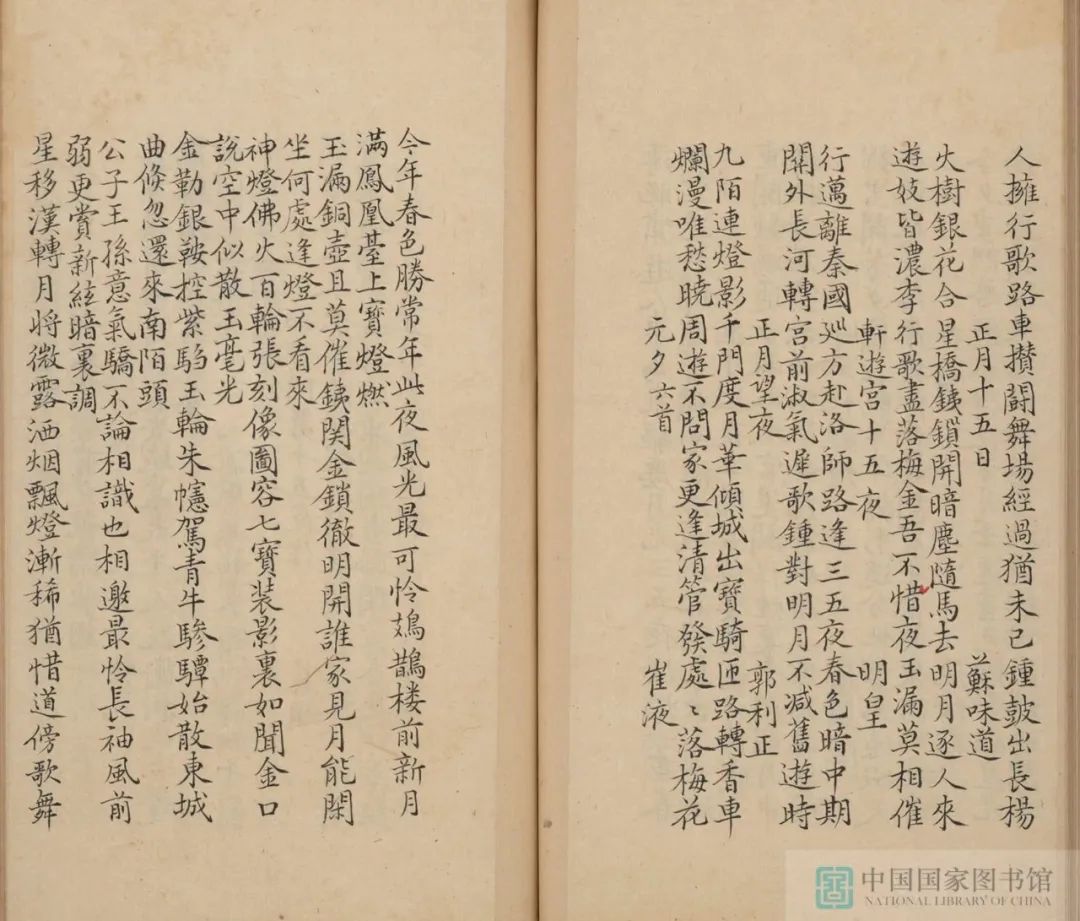 人擁行歌路車攢鬬舞場經過猶未已鍾皷出長楊
正月十五日 蘇味道
火樹銀花合星橋銕鎖開暗塵隨馬去明月逐人來
遊妓皆濃李行歌盡落梅金吾不惜夜玉漏莫相催
軒遊宮十五夜 明皇
行邁離秦國廵方赴洛師路逢三五夜春色暗中期
關外長河轉宮前淑氣遲歌鍾對明月不减舊遊時
正月望夜 郭利正
九陌連燈影千門度月華傾城出寶騎匝路轉香車
爛漫唯愁曉周遊不問家更逢清管發處〻落梅花
元夕六首 崔液
今年春色勝常年此夜風光最可怜鳷鵲楼前新月
滿鳳凰臺上寶燈燃
玉漏銅壺且莫催銕関金鎖徹明開誰家見月能閑
坐何處逢燈不看來
神燈佛火百輪張刻像圖容七寶装影裏如聞金口
說空中似散玉毫光
金勒銀鞍控紫騮玉輪朱幰駕青牛驂驔始散東城
曲倐忽還來南陌頭
公子王孫意氣驕不論相識也相邀最怜長袖風前
弱更賞新絃暗裏調
星移漢轉月將微露洒烟飄燈漸稀猶惜道傍歌舞
中国国家图书馆
NATIONAL LIBRARY OF CHINA